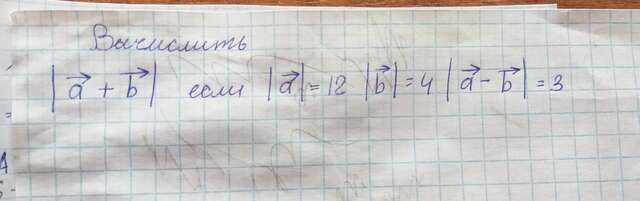 Вычислить
|a⃗ + b⃗| если |a⃗| = 12 |b⃗| = 4 |a⃗ - b⃗| = 3